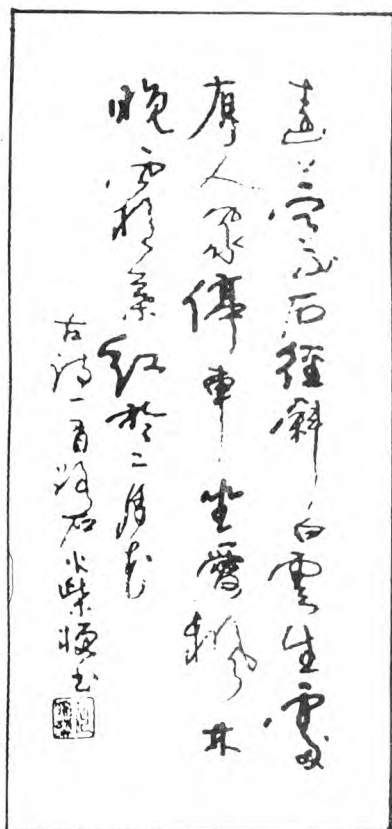 遠上寒山石徑斜白雲生處
有人家停車坐愛楓林
晚霜葉紅於二月花
古詩一首石柴書